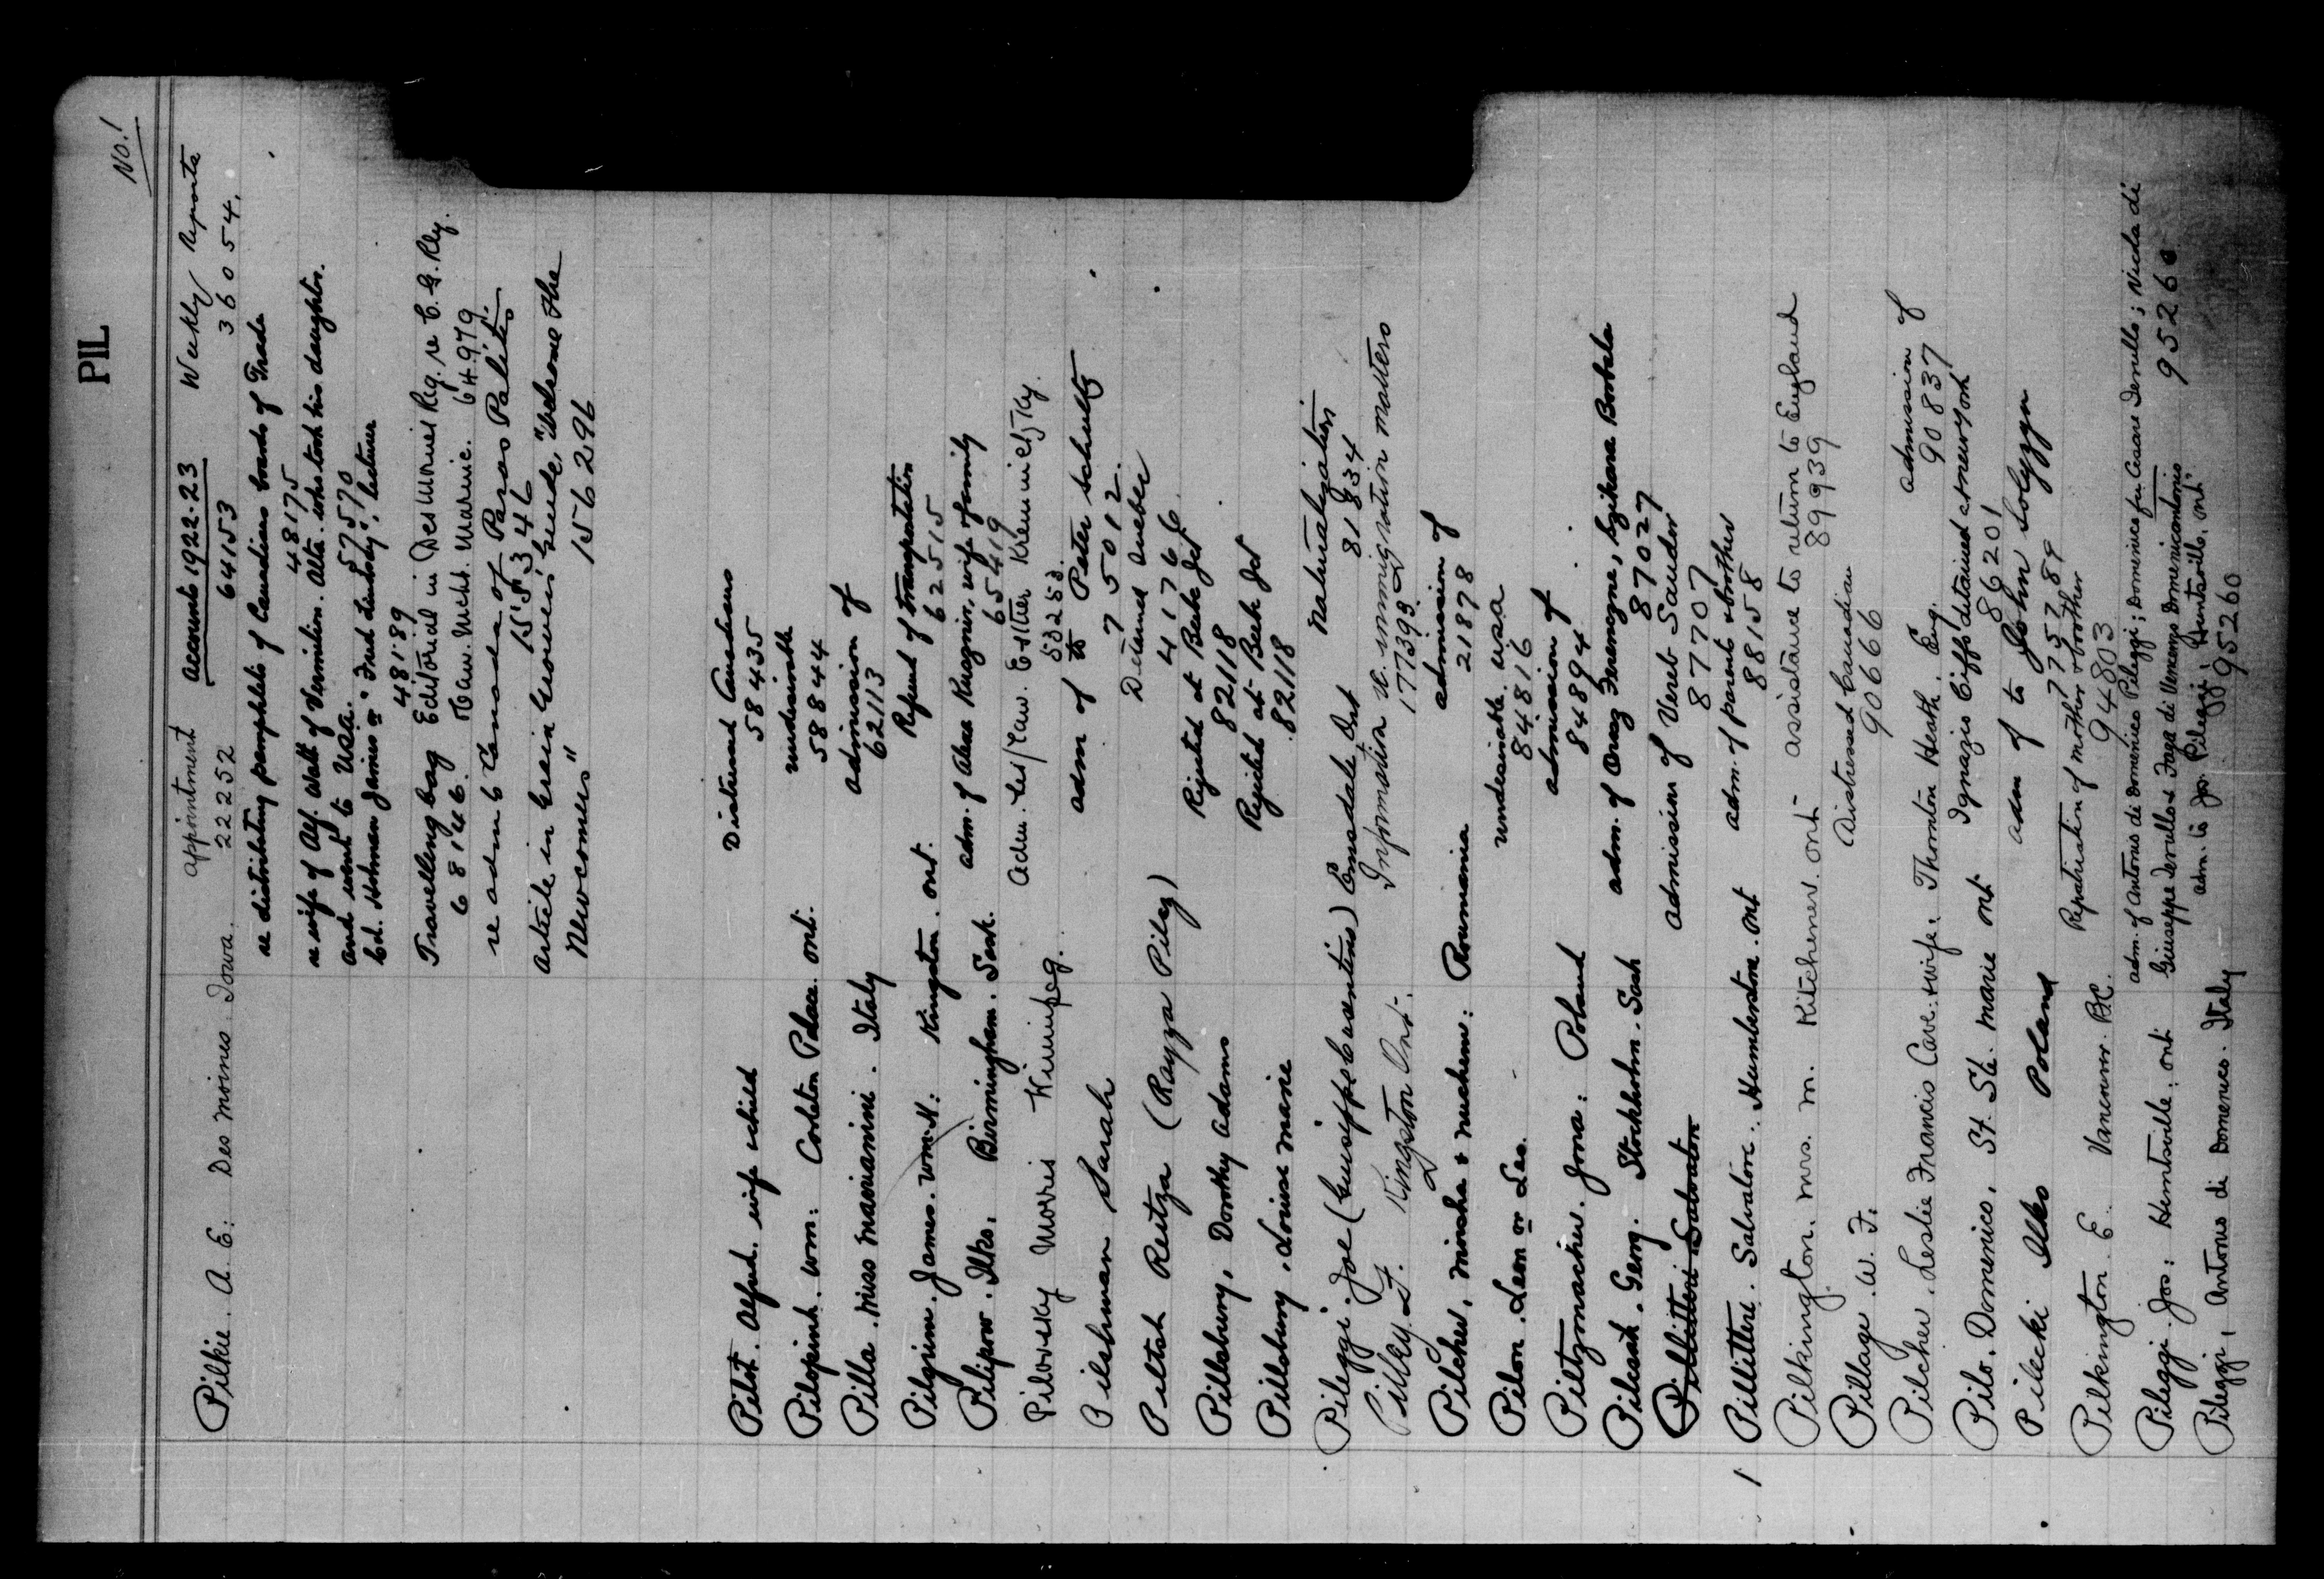 PIL
No. 1
Pilkie. A. E: Des Moines. Iowa. appointment Accounts 1922-23 Weekly Reports
22252 64153 36054.
re distributing pamphlets of Canadian boards of Trade
48175
re wife of Alf. Wall of Vermilion. Alta. who took his daughter.
and went to USA. 57570
Ed. Holman James or "Fred Lindsay", lecturer
48189
Travelling bag Editorial in Des Moines Reg. re C. G. Rly.
68146. Haw. Mcht. Marine. 64979
re adm to Canada of Paras Palites
155346
Article in Grain Growers' Guide, "Welcome the
Newcomers" 156296
Pilot. Alfred. wife & child Distressed Canadians
58435
Pilopink. Wm: Carleton Place. Ont. undesirable
58844
Pilla. Miss Mannamini. Italy admission of
62113
Pilgrim. James. Wm. H: Kingston. Ont. Refund of transportation
62515
Pilipow. Ilko. Birmingham. Sask. adm. of Alexa, wife & family
65419
Pilovesky Morris Winnipeg. Adm. Les/Law. Esther Kremenietzky.
553253.
Pilshman Sarah adm of to Peter Schultz
75012.
Piltch Reitza (Rayza Pilcz) Detained Quebec
41766
Pillsbury, Dorothy Adams Rejected at Beebe Jct
82118
Pillsbury, Louise Marie Rejected at Beebe Jct
82118
Pileggi. Joe (Guiseppe Cosentino) Emsdale Ont Naturalization
81834
Pilkey L. F. Kingston Ont. Information re. immigration matters
177393
Pilcher, Mincha & Nuchem: Roumania admission of
21878
Pilon. Leon or Leo. undesirable. USA
84816
Piltzmacher. Jona: Poland admission of
84894
Pilcsak. Georg. Stockholm. Sask adm. of Orosz Ferenczne, Szikora Borbala
87027
Pillitteri Salvatore admission of Vereb Sandor
87707
Pillitteri. Salvatore: Humberstone. Ont adm. of parents & brother
88158
Pilkington. Mrs. M. Kitchener. Ont- assistance to return to England
89939
Pillage. W. F. Distressed Canadian
90666
Pilcher. Leslie Francis Cave: & wife. Thornton Heath. Eng. admission of
90837
Pilo. Domenico. St. Ste. Marie Ont Ignazio Ciffo detained at New York
86201
Pilecki Ilko Poland adm of to John Solyzyn
775789
Pilkington. E. Vancouver. B.C. Repatriation of mother & brother
94803
Pileggi. Jos: Huntsville, Ont adm. of Antonio di Domenico Pileggi; Domenico fu Cesare Derullo; Nicola di
Giuseppe Derullo & Fraga di Vincenzo Domenicantonio 95260
Pileggi, Antonio di Domenico. Italy adm. to Jos. Pileggi, Huntsville, Ont
95260